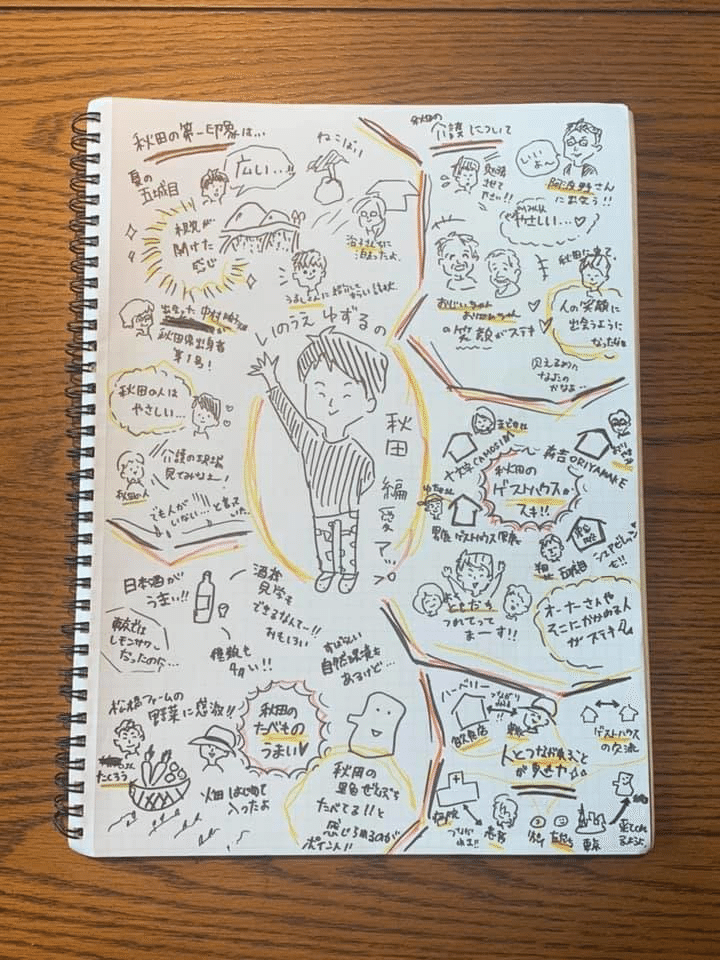 秋田の第一印象は…
夏の
五城目
広い…!!
ねこばり
視界が
開けた
感じ
泊まったよ
出会った
秋田県出身者
第1号!
秋田の人は
やさしい…
介護の現場
見てみなよー!
秋田の人
でも人が
いない…と言ってた…
いのうえ ゆずるの
秋田
編愛マップ
秋田の
介護について
させて
下さい!!
いいよ〜
さん
に出会う!!
やさしい…♡
おじいちゃん
おばあちゃん
の笑顔がステキ
秋田に来て
人の笑顔に
出会うように
なったなぁ
見えるように
なったの
かなぁ…
まどかさん
十文字CAMOSIBA
森吉ORIYAMAKE
秋田の
ゲストハウスが
スキ!!
男鹿 ゲストハウス
五城目
シェアビレッジ
も!!
よく
ともだち
つれてって
まーす!!
オーナーさんや
そこにかかわる人
がステキ
日本酒が
うまい!!
東京では
レモンサワー
だったのに…
酒蔵
見学も
できるなんて〜!!
おもしろい
種類も
多い!!
すばらしい
自然環境も
あるけど…
松橋ファームの
野菜に感激!!
たくろう
秋田の
たべもの
うまい♡
畑 はじめて
入ったよ
秋田の
たべてる!!と
感じられるのが
ポイント!!
ハーバリー
つながり
飲食店
ゲストハウス
の交流
人とつながれること
が幸せ
病院
つなが
れる!!
患者
東京
来てくれ
るように